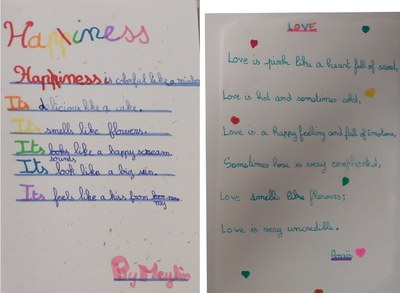 Happiness
Happiness is colorful like a rainbow
Its delicious like a cake.
Its smells like flowers.
Its looks like a happy scream.
sounds
Its look like a big sun.
Its feels like a kiss from
my
By
LOVE
Love is pink like a heart full of sand,
Love is hot and sometimes cold,
Love is a happy feeling and full of Emotions,
Sometimes love is very complicated,
Love smells like flowers;
Love is very uncredible.